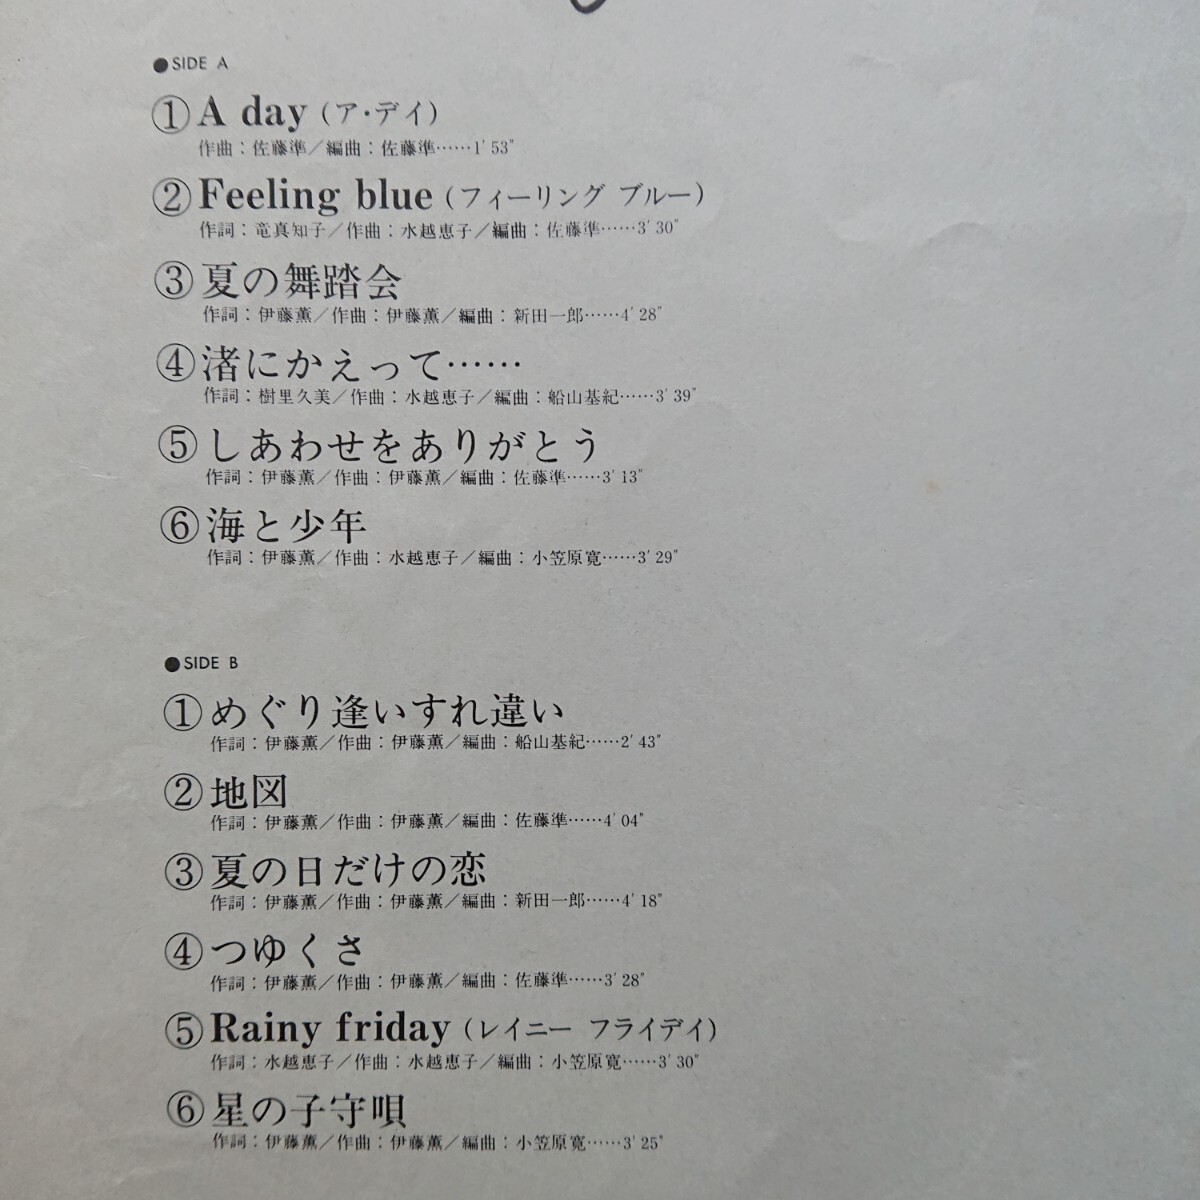 ●SIDE A
①A day（ア・デイ）
作曲：佐藤準／編曲：佐藤準……1′53″
②Feeling blue（フィーリング ブルー）
作詞：竜真知子／作曲：水越恵子／編曲：佐藤準……3′30″
③夏の舞踏会
作詞：伊藤薫／作曲：伊藤薫／編曲：新田一郎……4′28″
④渚にかえって……
作詞：樹里久美／作曲：水越恵子／編曲：船山基紀……3′39″
⑤しあわせをありがとう
作詞：伊藤薫／作曲：伊藤薫／編曲：佐藤準……3′13″
⑥海と少年
作詞：伊藤薫／作曲：水越恵子／編曲：小笠原寛……3′29″
●SIDE B
①めぐり逢いすれ違い
作詞：伊藤薫／作曲：伊藤薫／編曲：船山基紀……2′43″
②地図
作詞：伊藤薫／作曲：伊藤薫／編曲：佐藤準……4′04″
③夏の日だけの恋
作詞：伊藤薫／作曲：伊藤薫／編曲：新田一郎……4′18″
④つゆくさ
作詞：伊藤薫／作曲：伊藤薫／編曲：佐藤準……3′28″
⑤Rainy friday（レイニー フライデイ）
作詞：水越恵子／作曲：水越恵子／編曲：小笠原寛……3′30″
⑥星の子守唄
作詞：伊藤薫／作曲：伊藤薫／編曲：小笠原寛……3′25″